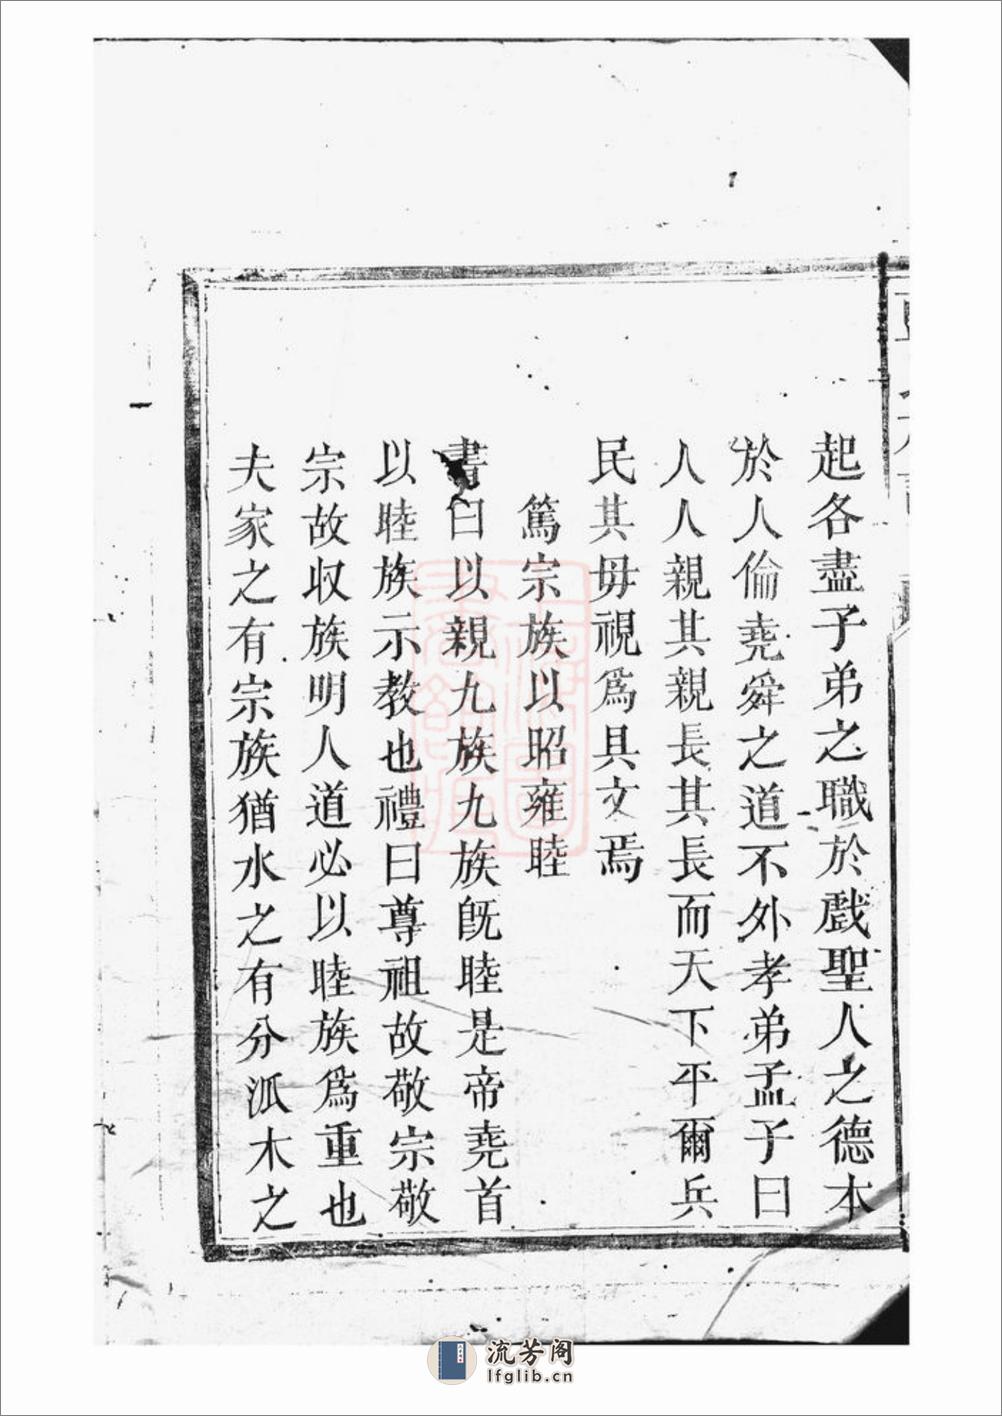 起各盡子弟之職於戲聖人之德本
於人倫堯舜之道不外孝弟孟子曰
人人親其親長其長而天下平爾兵
民其毋視爲具文焉
篤宗族以昭雍睦
書曰以親九族九族旣睦是帝堯首
以睦族示教也禮曰尊祖故敬宗敬
宗故収族明人道必以睦族爲重也
夫家之有宗族猶水之有分泒木之
流芳阁
lfglib.cn